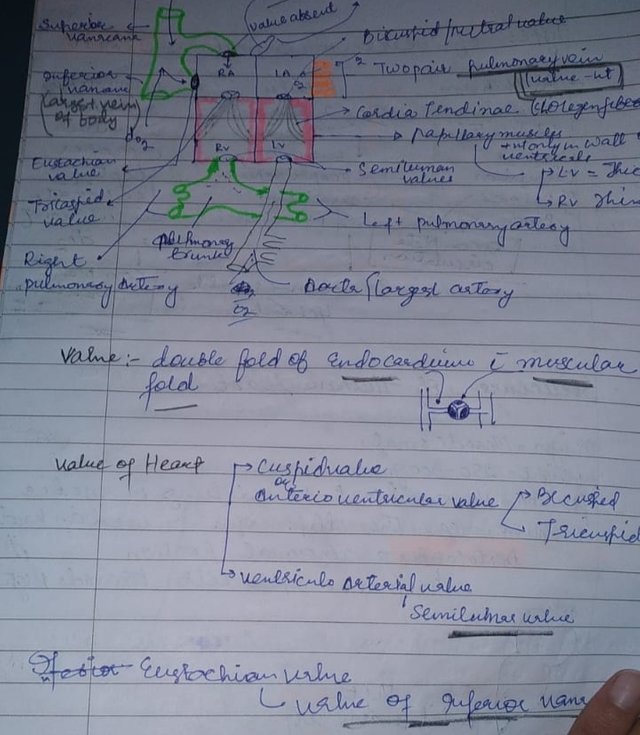 Superior
vanacana
valve absent
Bicuspid/mitral valve
Inferior
vanacana
(largest vein
of body)
RA
LA
O2
O2
Two pair pulmonary vein
(valve -nt)
Cordia Tendinae
papillary muscles
only in wall
ventricals
LV = Thic
RV Thin
do2
RV
LV
Eustachian
valve
Semilunar
valves
Tricaspid
valve
Left pulmonary artery
pulmonary
trunk
Right
pulmonary artery
Aorta/largest artory
O2
Valve :- double fold of Endocardium i muscular
fold
Valve of Heart
Cuspid valve
or
Anterio ventricular valve
Bicuspid
Tricuspid
Ventriculo Arterial valve
Semilunar valve
Eustachian valve
valve of inferior vana